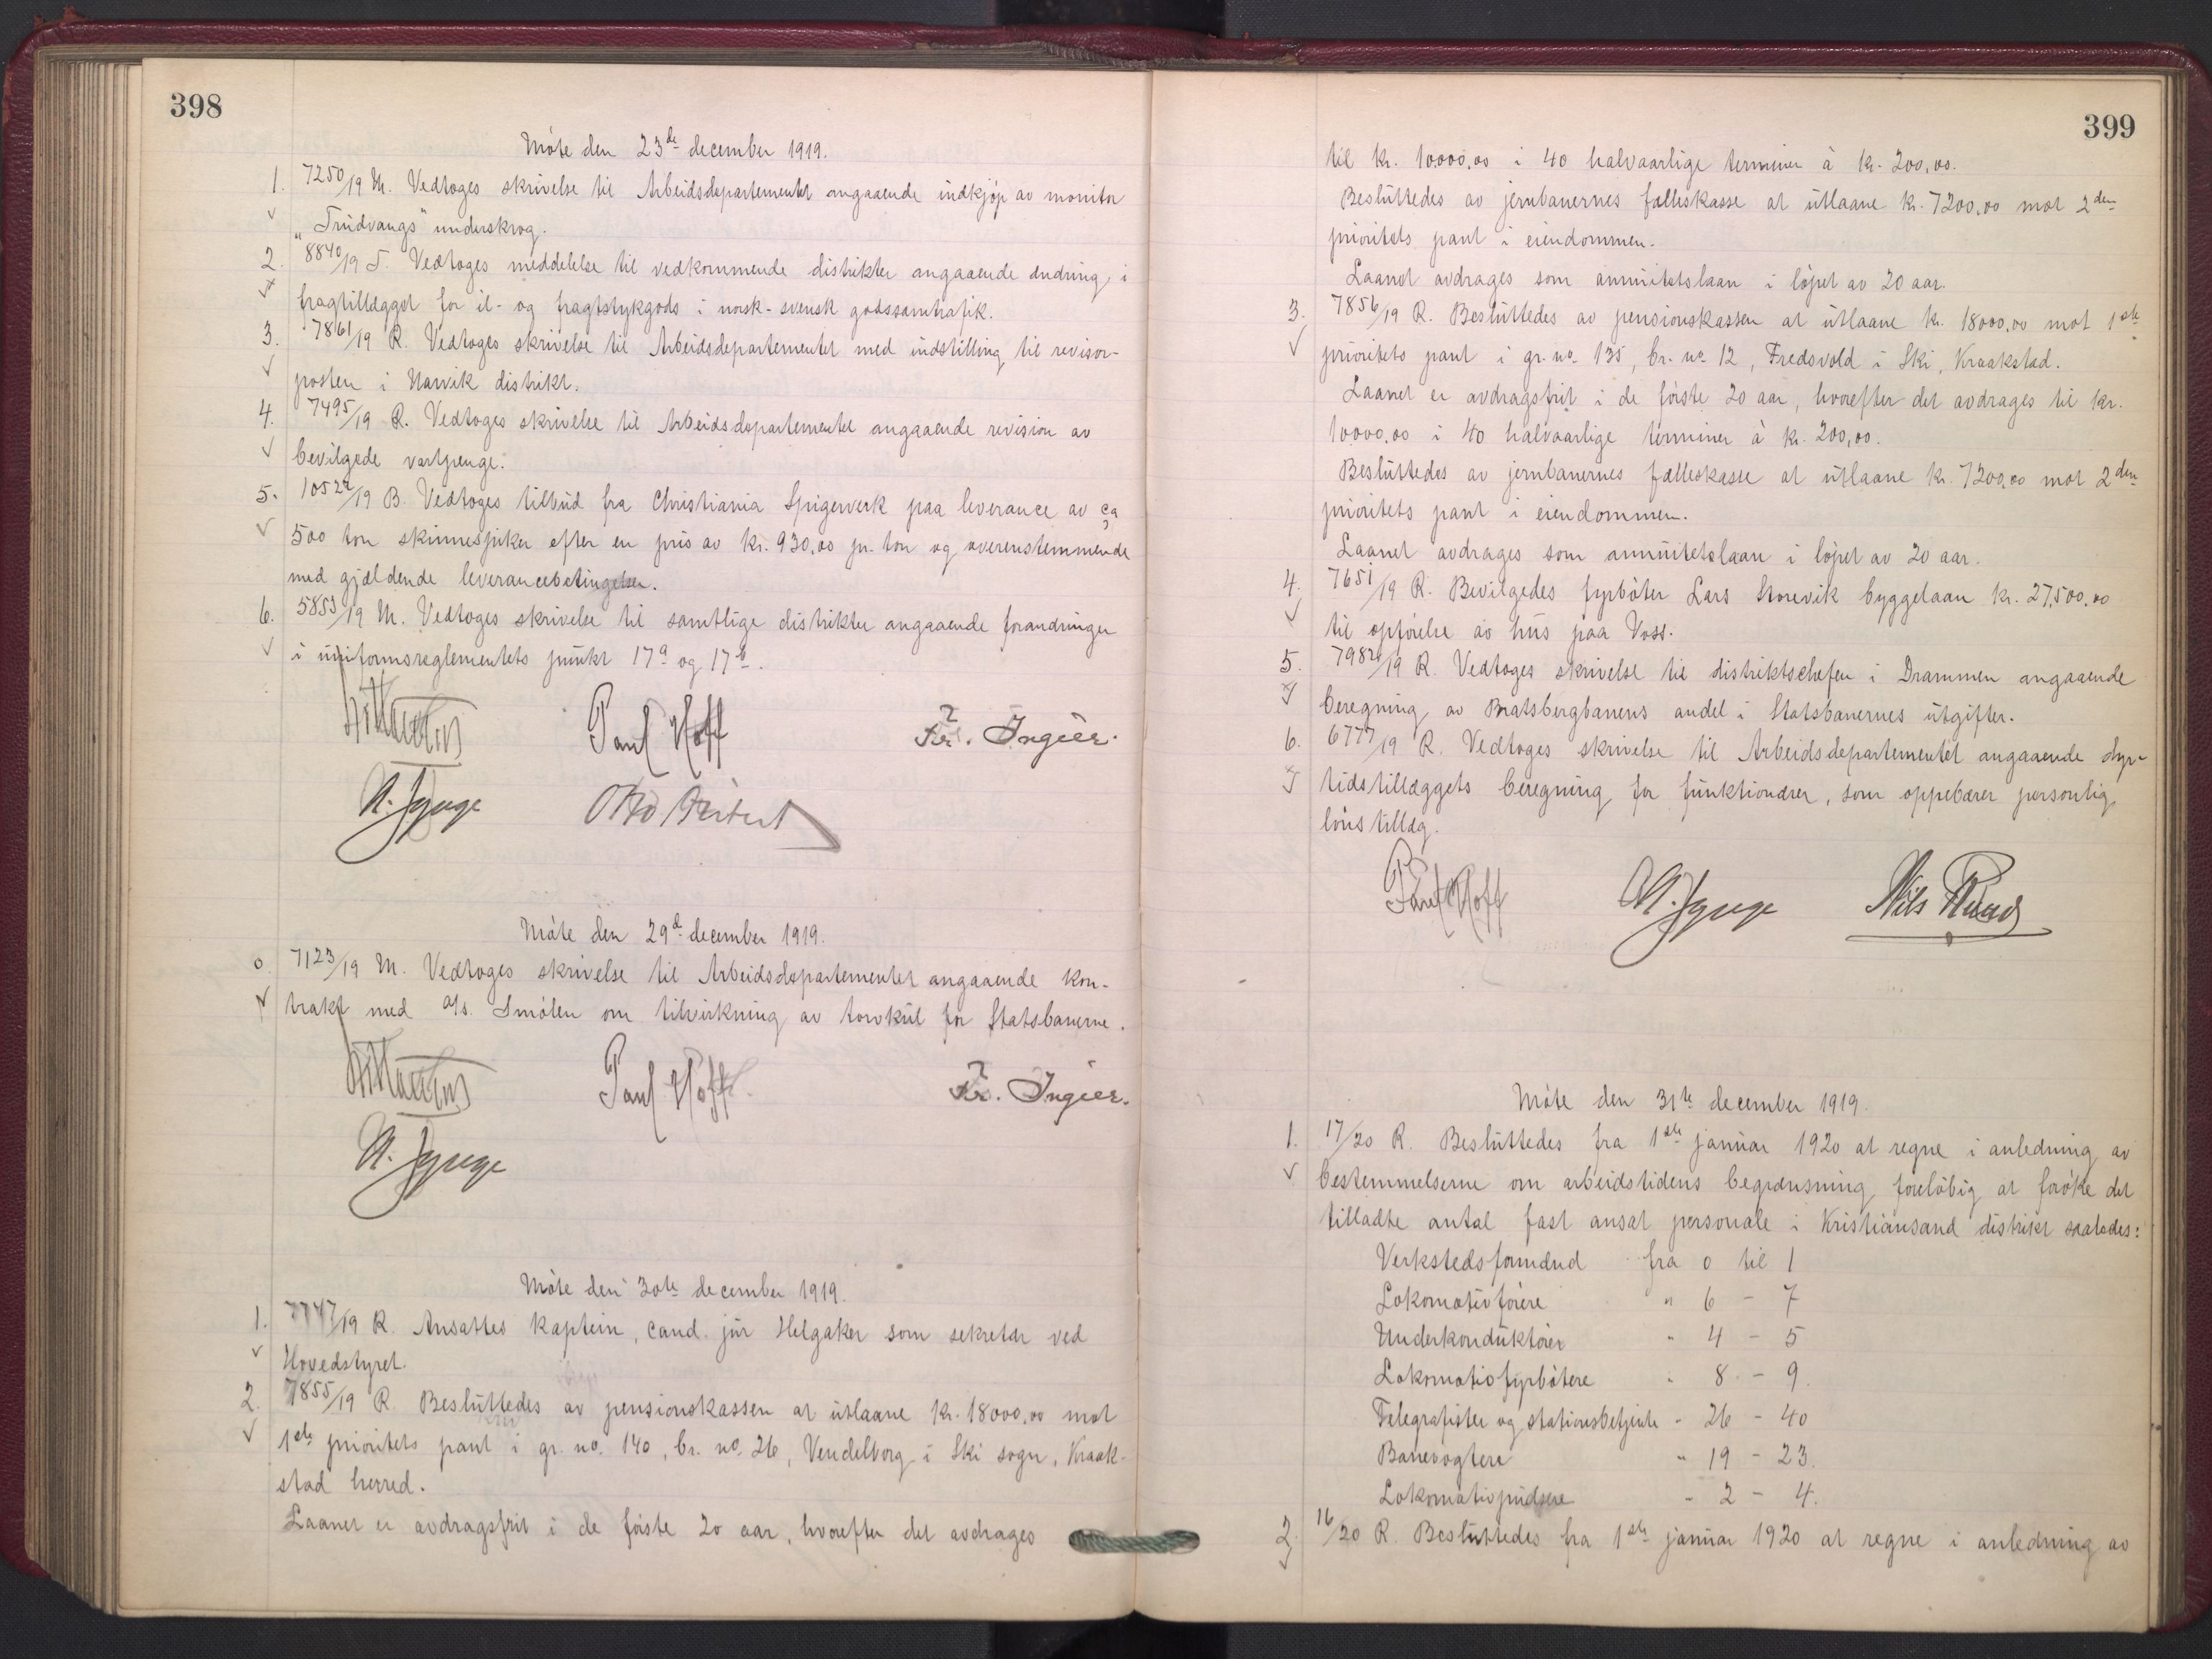 398
Móte den 23de december 1919.
1. 7250/19 M. Vedtoges skrivelse til Arbeidsdepartementet angaaende indkjøp av monitor
„Trudvangs" underskrog.
2. 8840/19 T. Vedtoges meddelelse til vedkommende distrikter angaaende ændring i
fragttillægget for il- og fragtstykgods i norsk-svensk godssamtrafik.
3. 7861/19 R. Vedtoges skrivelse til Arbeidsdepartementet med indstilling til revisor-
posten i Narvik distrikt.
4. 7495/19 R. Vedtoges skrivelse til Arbeidsdepartementet angaaende revision av
bevilgede vartpenge.
5. 10522/19 B. Vedtoges tilbud fra Christiania Spigerverk paa leverance av ca
500 ton skinnespiker efter en pris av kr. 930,00 pr. ton og overenstemmende
med gjældende leverancebetingelser.
6. 5853/19 M. Vedtoges skrivelse til samtlige distrikter angaaende forandringer
i uniformsreglementets punkt 17a og 17b.
Paul Hoff Fr. Ingier.
Móte den 29de december 1919.
0. 7123/19 M. Vedtoges skrivelse til Arbeidsdepartementet angaaende kon-
trakt med A/s. Smólen om tilvirkning av torvkul for Statsbanerne.
Paul Hoff. Fr. Ingier.
Móte den 30te december 1919.
1. 7747/19 R. Ansattes kaptein, cand. jur Helgaker som sekretær ved
Hovedstyret.
2. 7855/19 R. Besluttedes av pensionskassen at utlaane kr. 18000,00 mot
1ste prioritets pant i gr. no. 140, br. no. 26, Vendelborg i Ski sogn, Kraak-
stad herred.
Laanet er avdragsfrit i de fórste 20 aar, hvorefter det avdrages
399
til kr. 10000,00 i 40 halvaarlige terminer à kr. 200,00.
Besluttedes av jernbanernes fælleskasse at utlaane kr. 7200,00 mot 2den
prioritets pant i eiendommen.
Laanet avdrages som annuitetslaan i lópet av 20 aar.
3. 7856/19 R. Besluttedes av pensionskassen at utlaane kr. 18000,00 mot 1ste
prioritets pant i gr. no 135, br. no 12, Fredsvold i Ski, Kraakstad.
Laanet er avdragsfrit i de fórste 20 aar, hvorefter det avdrages til kr.
10000,00 i 40 halvaarlige terminer à kr. 200,00.
Besluttedes av jernbanernes fælleskasse at utlaane kr. 7200,00 mot 2den
prioritets pant i eiendommen.
Laanet avdrages som annuitetslaan i lópet av 20 aar.
4. 7651/19 R. Bevilgedes fyrbóter Lars Storevik byggelaan kr. 27,500,00
til opfórelse av hus paa Voss.
5. 7982/19 R. Vedtoges skrivelse til distriktschefen i Drammen angaaende
beregning av Bratsbergbanens andel i Statsbanernes utgifter.
6. 6777/19 R. Vedtoges skrivelse til Arbeidsdepartementet angaaende dyr-
tidstillæggets beregning for funktionærer, som oppebærer personlig
lónstillæg.
Paul Hoff Nils Ruud
Móte den 31te december 1919.
1. 17/20 R. Besluttedes fra 1ste januar 1920 at regne i anledning av
bestemmelserne om arbeidstidens begrænsning forelóbig at foróke det
tilladte antal fast ansat personale i Kristiansand distrikt saaledes:
Verkstedsformænd fra 0 til 1
Lokomotivfórere " 6 - 7
Underkonduktórer " 4 - 5
Lokomotivfyrbótere " 8 - 9.
Telegrafister og stationsbetjente - 26 - 40
Banevogtere " 19 - 23.
Lokomotivpudsere - 2 - 4.
2. 16/20 R. Besluttedes fra 1ste januar 1920 at regne i anledning av